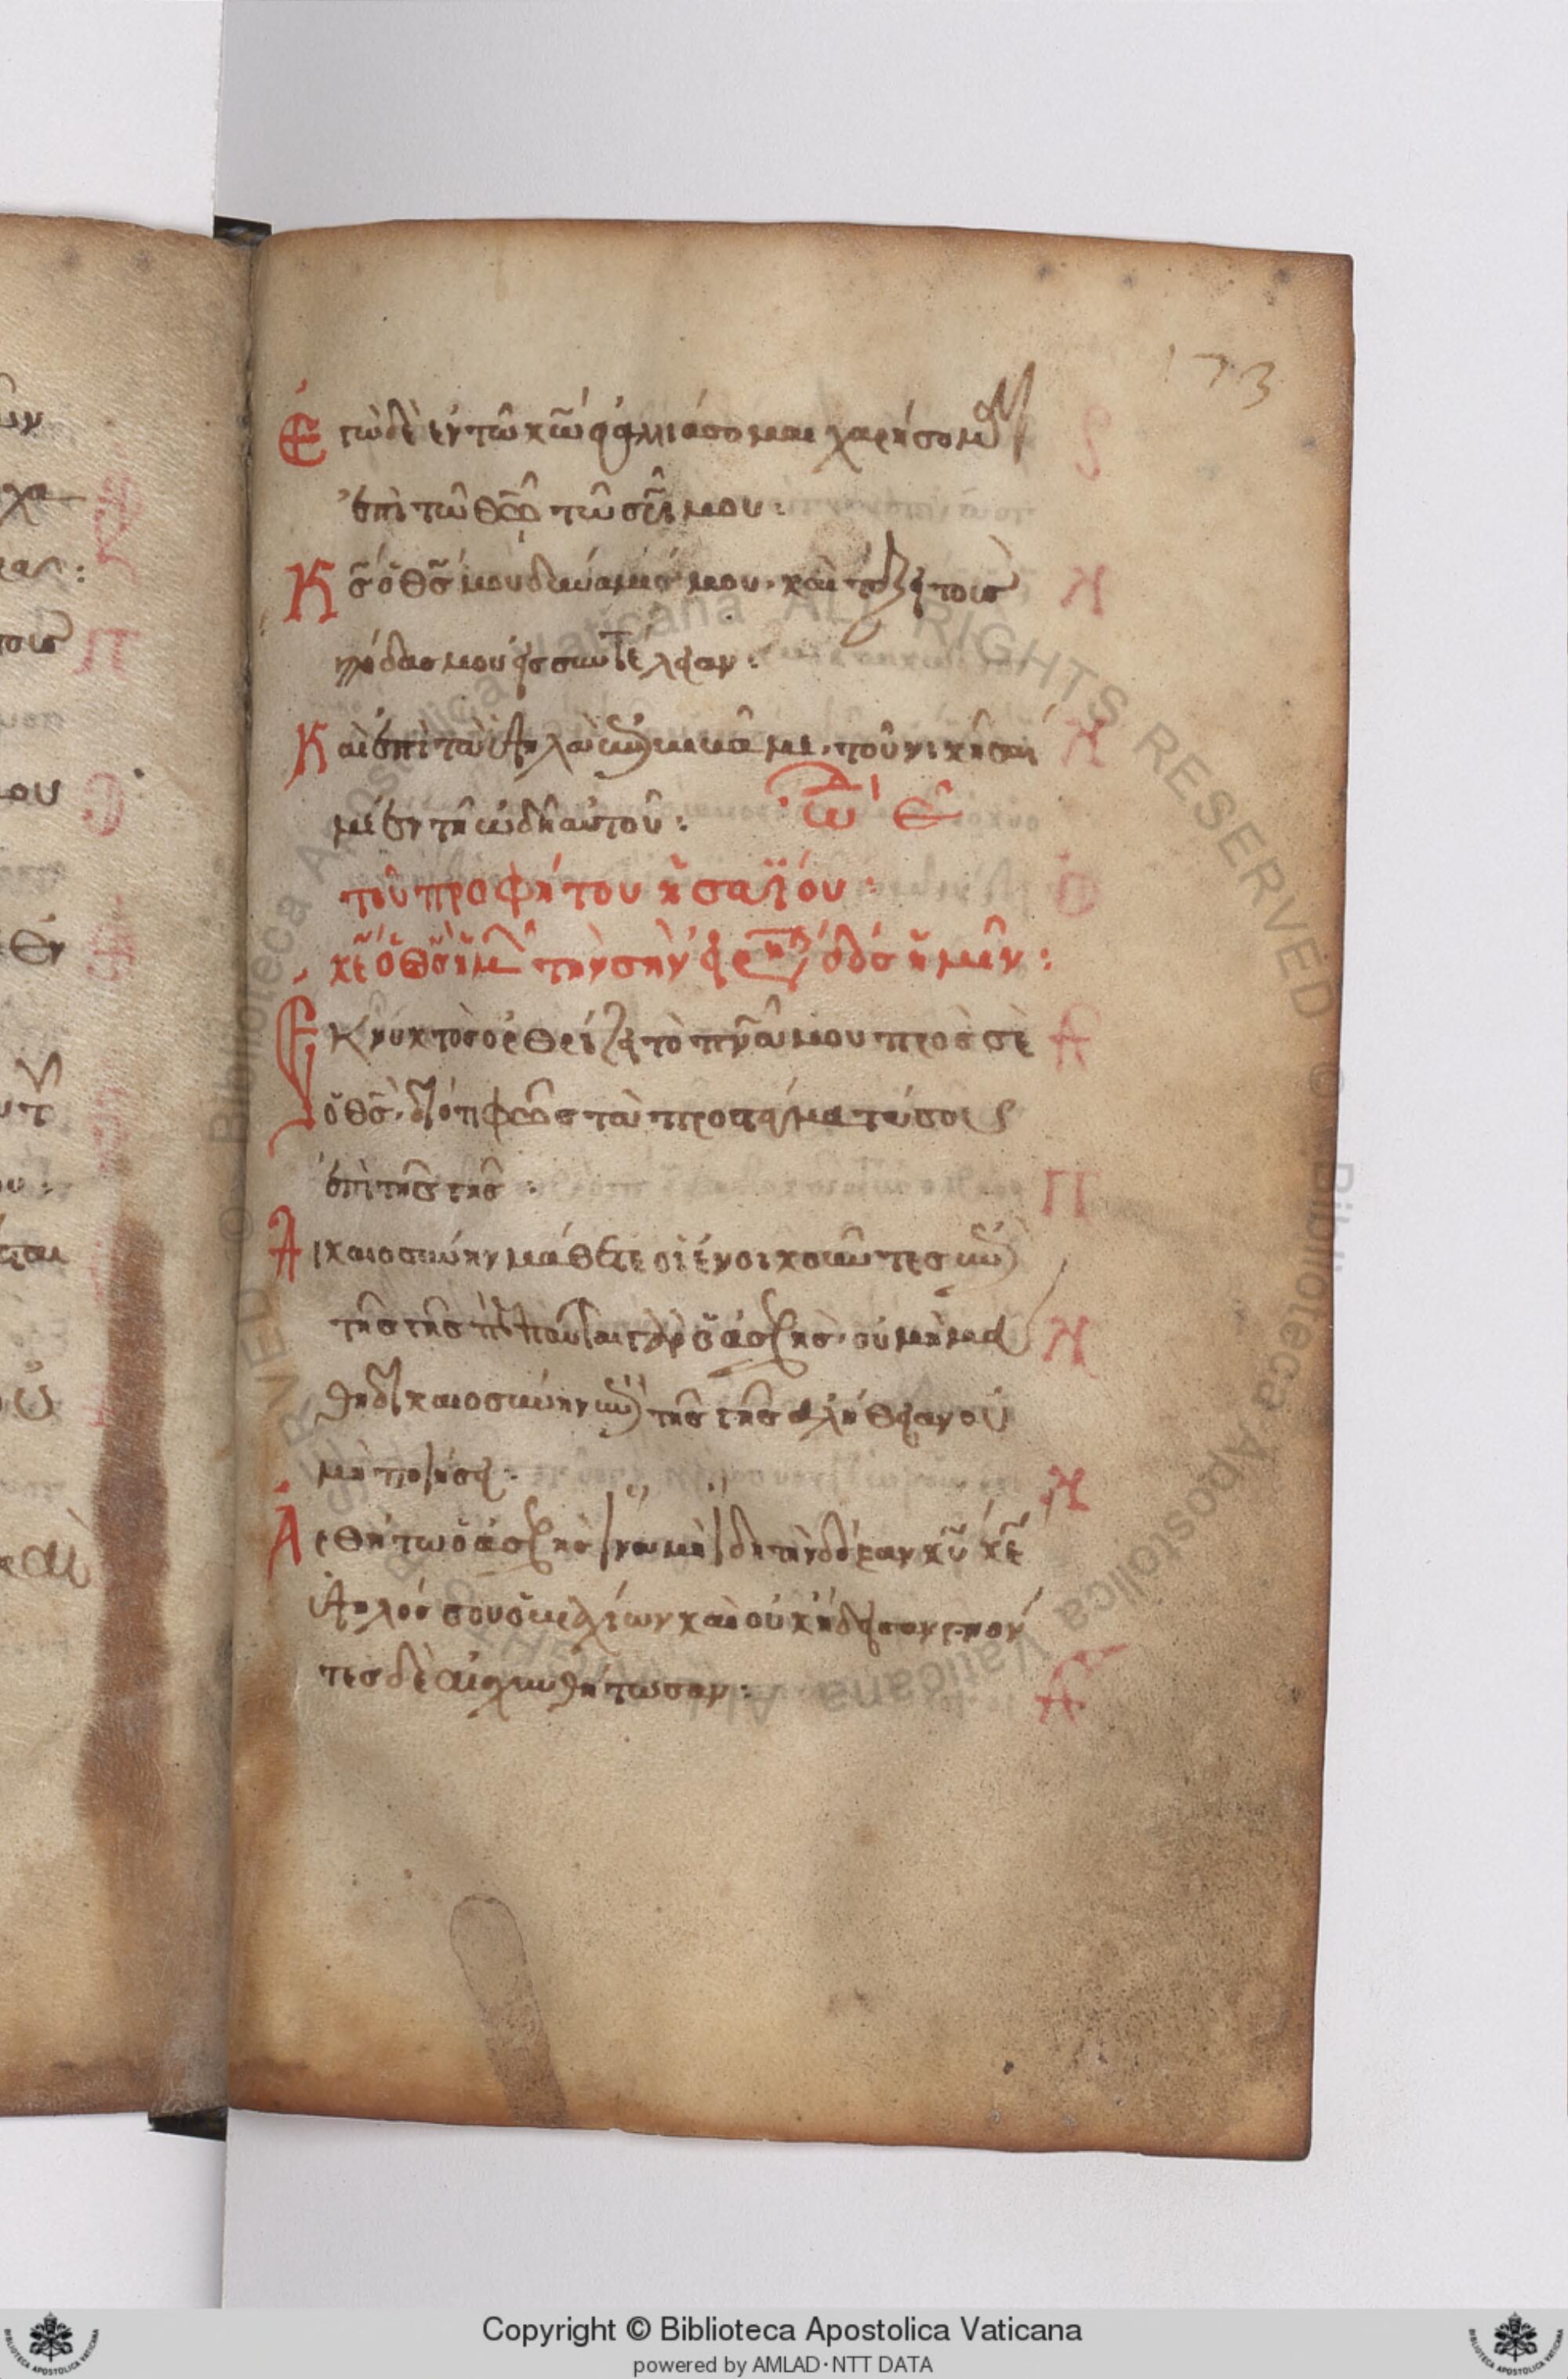 173
Ἐγὼ δὲ ἐν τῶ κ̅ω̅ ἀγαλλιάσομαι χαρήσομαι
ἐπὶ τῶ θ̅ω̅ τῶ σ̅ρ̅ι̅ μου:
Κ̅ς̅ ὁ θ̅ς̅ μου δύναμίς μου. καὶ τάξει τοὺς
πόδας μου εἰς συντέλειαν:
Καὶ ἐπὶ τὰ ὑψηλὰ ἐπιβιβᾶ με. τοῦ νικῆσαί
με ἐν τῆ ὠδῆ αὐτοῦ: ὠ ε
τοῦ προφήτου ἠσαΐου:
κ̅ε̅ ὁ θ̅ς̅ ἡμῶν τὴν σὴν εἰρήνην δὸς ἡμῖν:
Ἐκ νυκτὸς ὀρθρίζει τὸ π̅ν̅α̅ μου πρὸς σὲ
ὁ θ̅ς̅. διότι φῶς τὰ προστάγματά σου
ἐπὶ τῆς γῆς:
Δικαιοσύνην μάθετε οἱ ἐνοικοῦντες ἐπὶ
τῆς γῆς πέπαυται γὰρ ὁ ἀσεβής. οὐ μὴ μά
θη δικαιοσύνην ἐπὶ τῆς γῆς ἀλήθειαν οὐ
μὴ ποιήσει:
Ἀρθήτω ὁ ἀσεβὴς ἵνα μὴ ἴδη τὴν δόξαν κ̅υ̅ κ̅ε̅
ὑψηλός σου ὁ βραχίων καὶ οὐκ ἤδεισαν γνόν
τες δὲ αἰσχυνθήτωσαν:
Copyright © Biblioteca Apostolica Vaticana
powered by AMLAD·NTT DATA